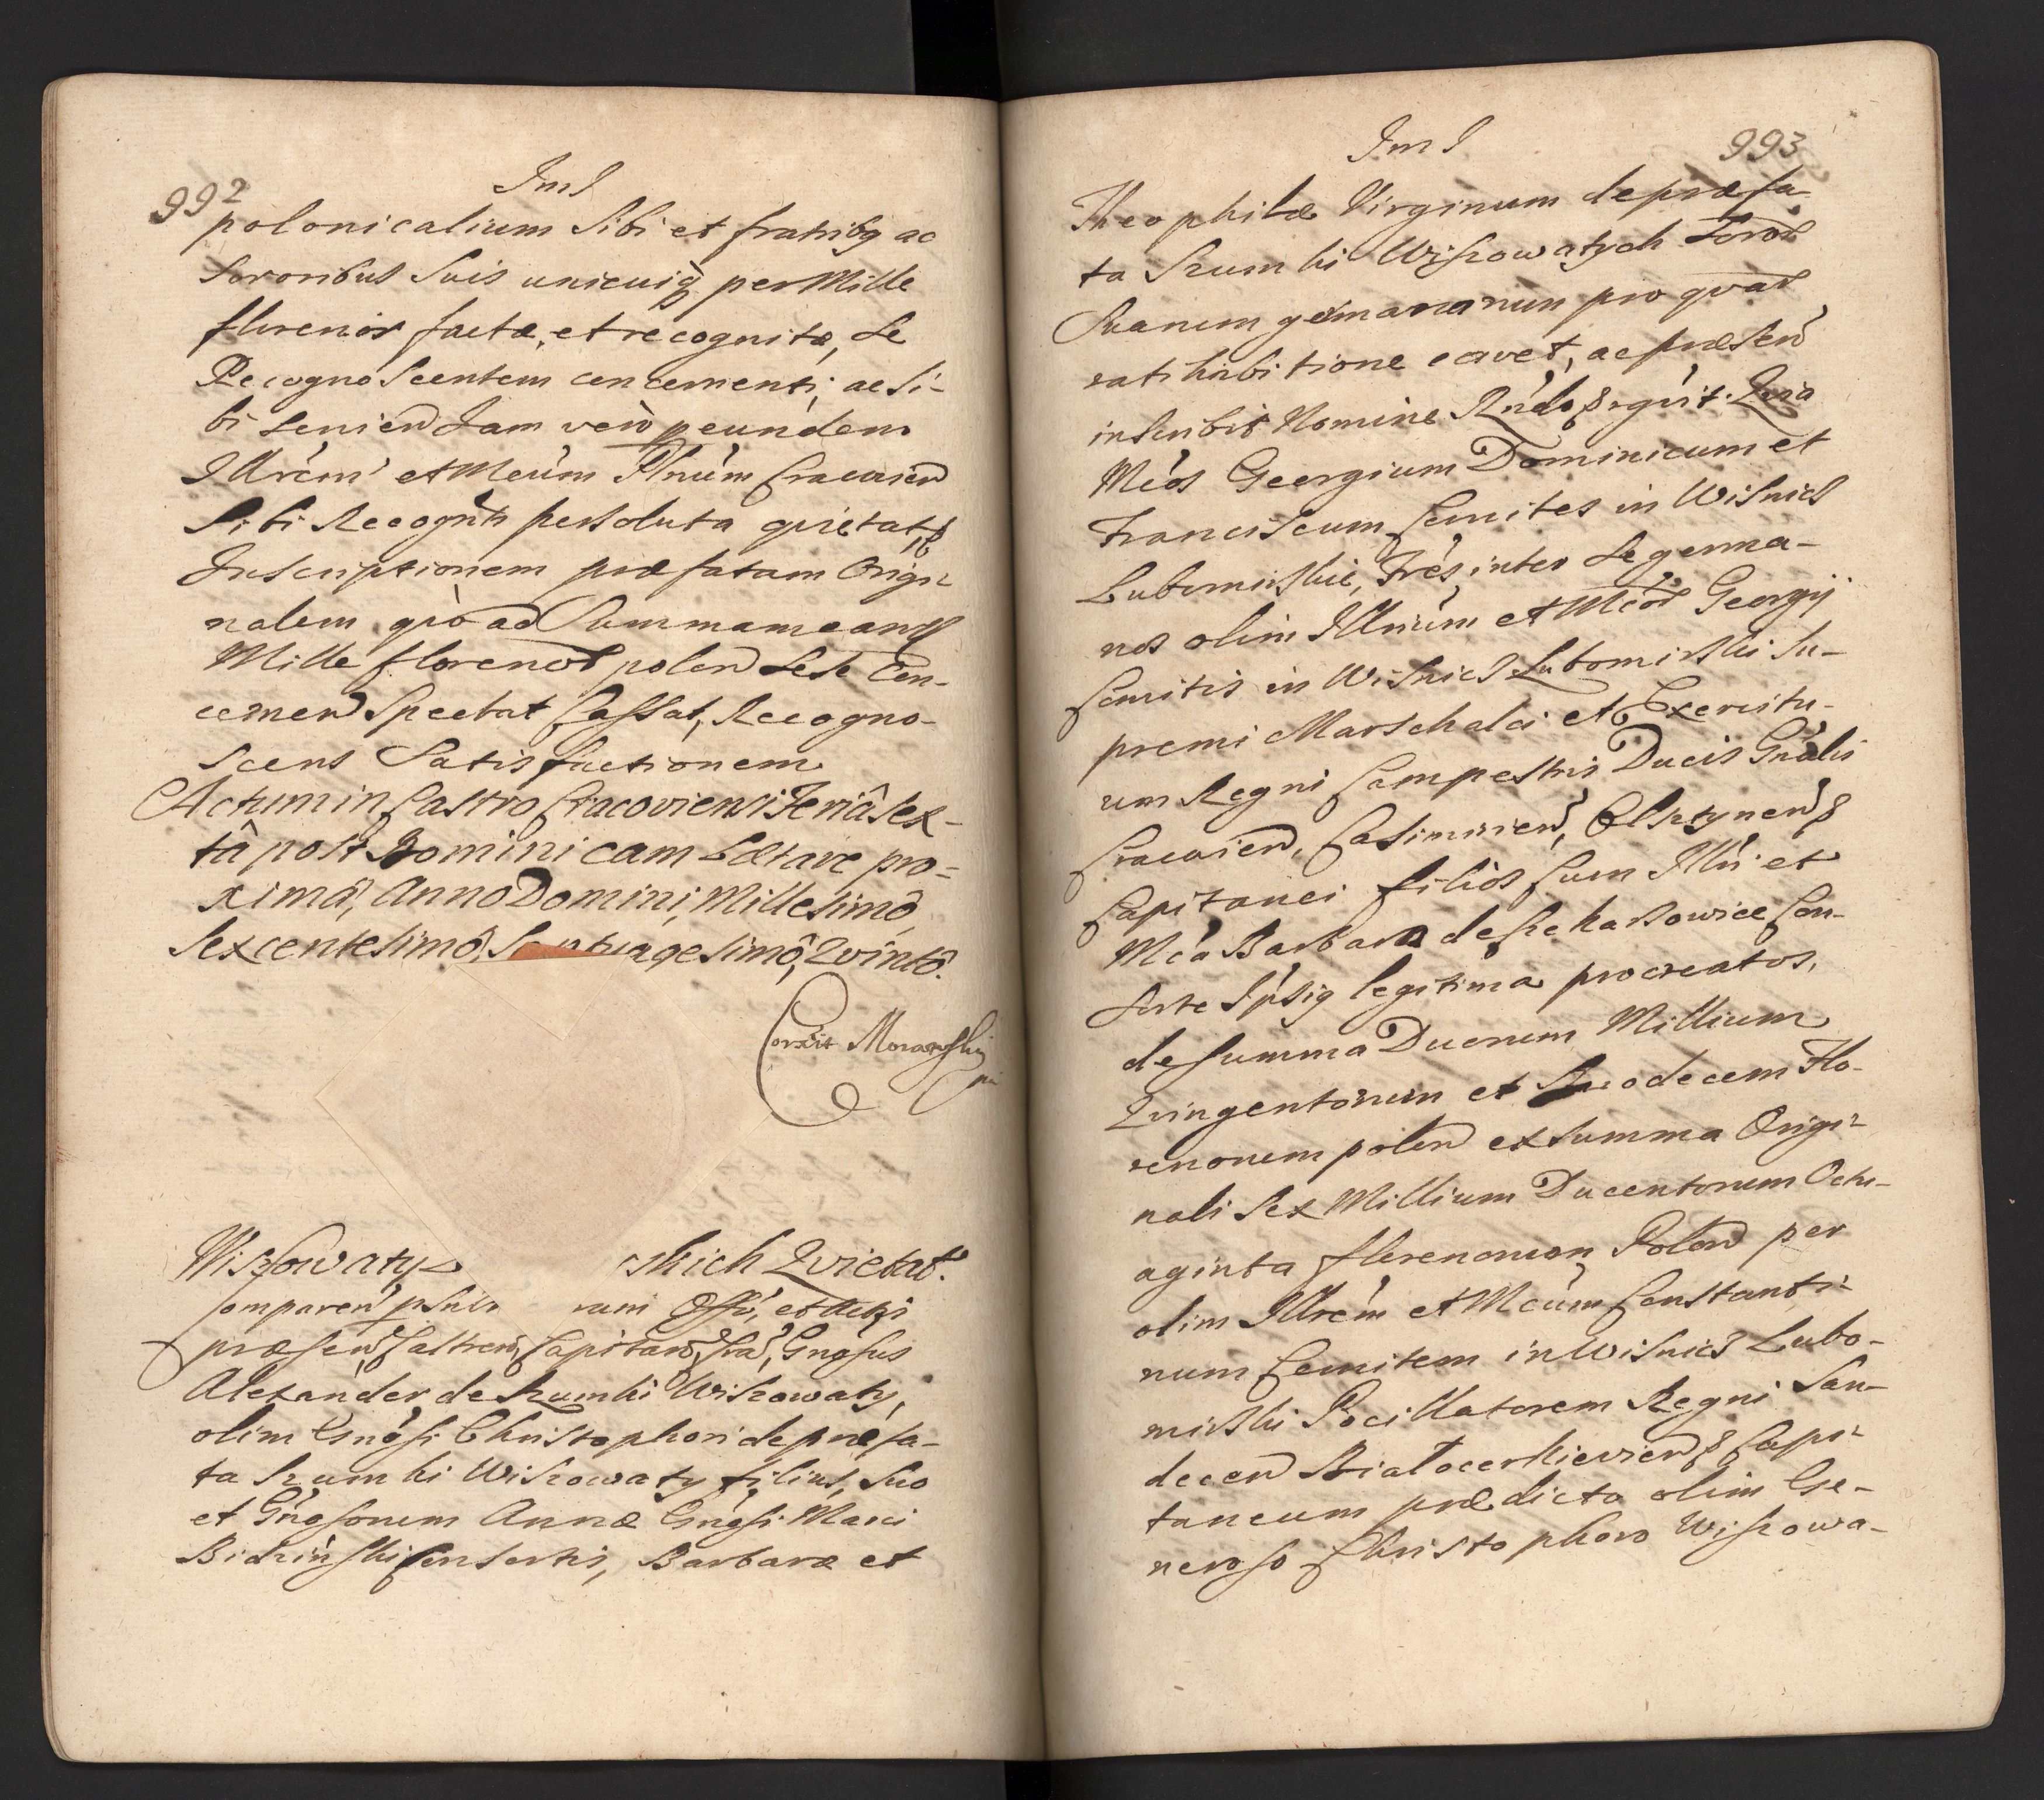 992
ImI
polonicalium Sibi et fratribq ac
Sororibus Suis unicuiq per Mille
florenos factæ, et recognitæ, Se
Recognoscentem concernenti, ac Si-
bi Servien Jam verò p eundem
Illrem et Mcum Dnum Cracovien
Sibi Recognti persoluta quietat, &
Inscriptionem præfatam Origi-
nalem quo ad Summam eand
Mille florenos polon Sese Con-
cernen Spectat Cassat, Recogno-
scens Satisfactionem
Actum in Castro Cracoviensi Feriâ Sex-
tâ post Dominicam Lætare pro-
ximâ, Anno Domini, Millesimô
Sexcentesimô, Septuagesimô, Qvintô.
Corexit Morawski
mp
Wiszowaty skich Qvietat.
Comparen psnlr rum Offi, et Actis
præsen Castren Capitan Cra, Gnosus
Alexander de Szumki Wiszowaty,
olim Gnosi Christophori de præfa-
ta Szumki Wiszowaty filius, Suo
et Gnosorum Annæ Gnosi Marci
Bidzinski Consortis, Barbaræ et
ImI
993
Theophilæ Virginum de præfa-
ta Szumki Wiszowatych Soror
Suarum germanarum pro quar
ratihabitione cavet, ac præsen
inscribit Nomine Rndo & rgnit. Quia
Mcos Georgium Dominicum et
Franciscum Comites in Wisnicz
Lubomirskie, Fres inter Se germa-
nos olim Illrium et Mcor Georgij
Comitis in Wisnicz Lubomirski Su-
premi Marschalci et Exercitu-
um Regni Campestris Ducis Gnalis
Cracovien, Casimirien, Olsztynen &
Capitanei filios Cum Illri et
Mca Barbara de Szekarzowice Con-
sorte Ipsiq legitima procreatos,
de Summa Duorum Millium
Qvingentorum et Duodecem Flo-
renorum polon ex Summa Origi-
nali Sex Millium Ducentorum Octu-
aginta florenorum Polon per
olim Illrem et Mcum Constanti-
num Comitem in Wisnicz Lubo-
mirski Pocillatorem Regni San-
decen Bialocerkievien & Capi-
taneum prædicto olim Ge-
neroso Christophoro Wiszowa-